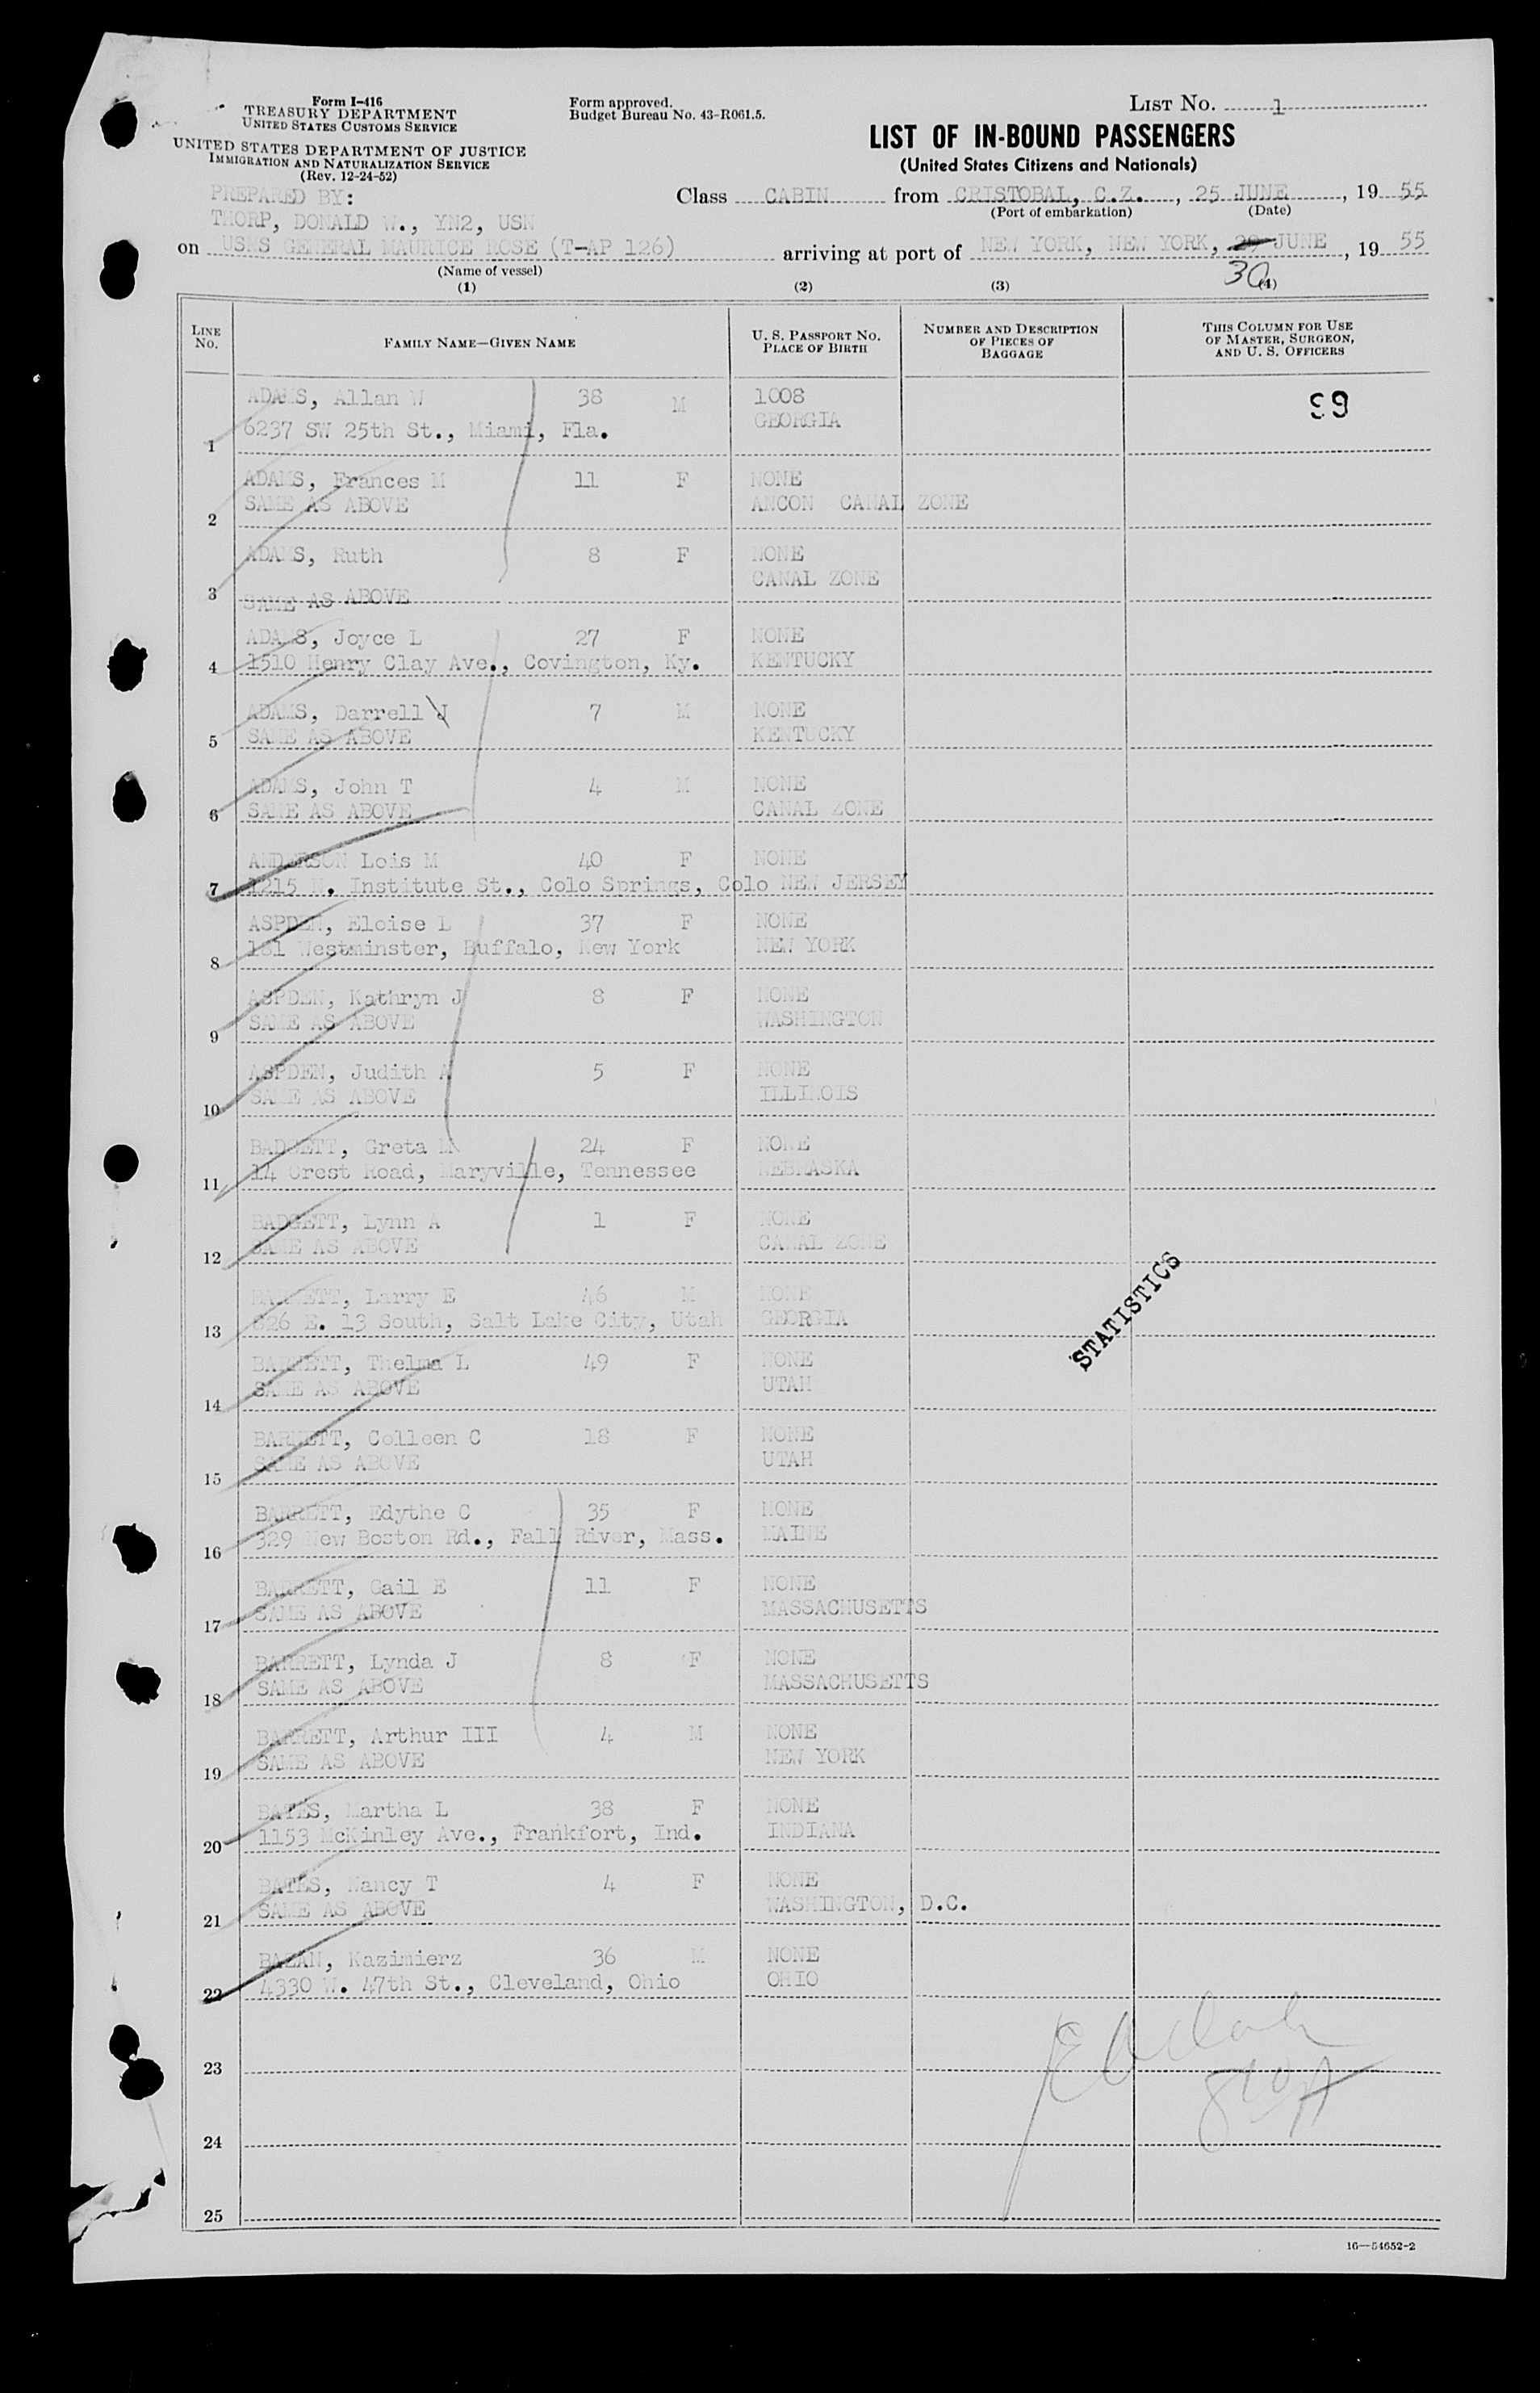 Form I-416
TREASURY DEPARTMENT
UNITED STATES CUSTOMS SERVICE
UNITED STATES DEPARTMENT OF JUSTICE
IMMIGRATION AND NATURALIZATION SERVICE
(Rev. 12-24-52)
Form approved.
Budget Bureau No. 43-R061.5.
LIST NO. 1
LIST OF IN-BOUND PASSENGERS
(United States Citizens and Nationals)
PREPARED BY:
THORP, DONALD W., YN2, USN
Class CABIN from CRISTOBAL, C.Z., 25 JUNE, 19 55
(Port of embarkation) (Date)
on USNS GENERAL MAURICE ROSE (T-AP 126) arriving at port of NEW YORK, NEW YORK, 29 JUNE, 19 55
30
(Name of vessel)
(1) (2) (3) (4)
LINE NO.
FAMILY NAME—GIVEN NAME
U. S. PASSPORT NO.
PLACE OF BIRTH
NUMBER AND DESCRIPTION
OF PIECES OF
BAGGAGE
THIS COLUMN FOR USE
OF MASTER, SURGEON,
AND U. S. OFFICERS
ADAMS, Allan W 38 M 1008
99
1 6237 SW 25th St., Miami, Fla. GEORGIA
ADAMS, Frances M 11 F NONE
2 SAME AS ABOVE ANCON CANAL ZONE
ADAMS, Ruth 8 F NONE
3 SAME AS ABOVE CANAL ZONE
ADAMS, Joyce L 27 F NONE
4 1510 Henry Clay Ave., Covington, Ky. KENTUCKY
ADAMS, Darrell J 7 M NONE
5 SAME AS ABOVE KENTUCKY
ADAMS, John T 4 M NONE
6 SAME AS ABOVE CANAL ZONE
ANDERSON Lois M 40 F NONE
7 1215 N. Institute St., Colo Springs, Colo NEW JERSEY
ASPDEN, Eloise L 37 F NONE
8 181 Westminster, Buffalo, New York NEW YORK
ASPDEN, Kathryn J 8 F NONE
9 SAME AS ABOVE WASHINGTON
ASPDEN, Judith A 5 F NONE
10 SAME AS ABOVE ILLINOIS
BADGETT, Greta M 24 F NONE
11 14 Crest Road, Maryville, Tennessee NEBRASKA
BADGETT, Lynn A 1 F NONE
12 SAME AS ABOVE CANAL ZONE
BARNETT, Larry E 46 M NONE
13 826 E. 13 South, Salt Lake City, Utah GEORGIA
STATISTICS
BARNETT, Thelma L 49 F NONE
14 SAME AS ABOVE UTAH
BARNETT, Colleen C 18 F NONE
15 SAME AS ABOVE UTAH
BARRETT, Edythe C 35 F NONE
16 329 New Boston Rd., Fall River, Mass. MAINE
BARRETT, Gail E 11 F NONE
17 SAME AS ABOVE MASSACHUSETTS
BARRETT, Lynda J 8 F NONE
18 SAME AS ABOVE MASSACHUSETTS
BARRETT, Arthur III 4 M NONE
19 SAME AS ABOVE NEW YORK
BATES, Martha L 38 F NONE
20 1153 McKinley Ave., Frankfort, Ind. INDIANA
BATES, Nancy T 4 F NONE
21 SAME AS ABOVE WASHINGTON, D.C.
BAZAN, Kazimierz 36 M NONE
22 4330 W. 47th St., Cleveland, Ohio OHIO
23
24
25
16—54652-2